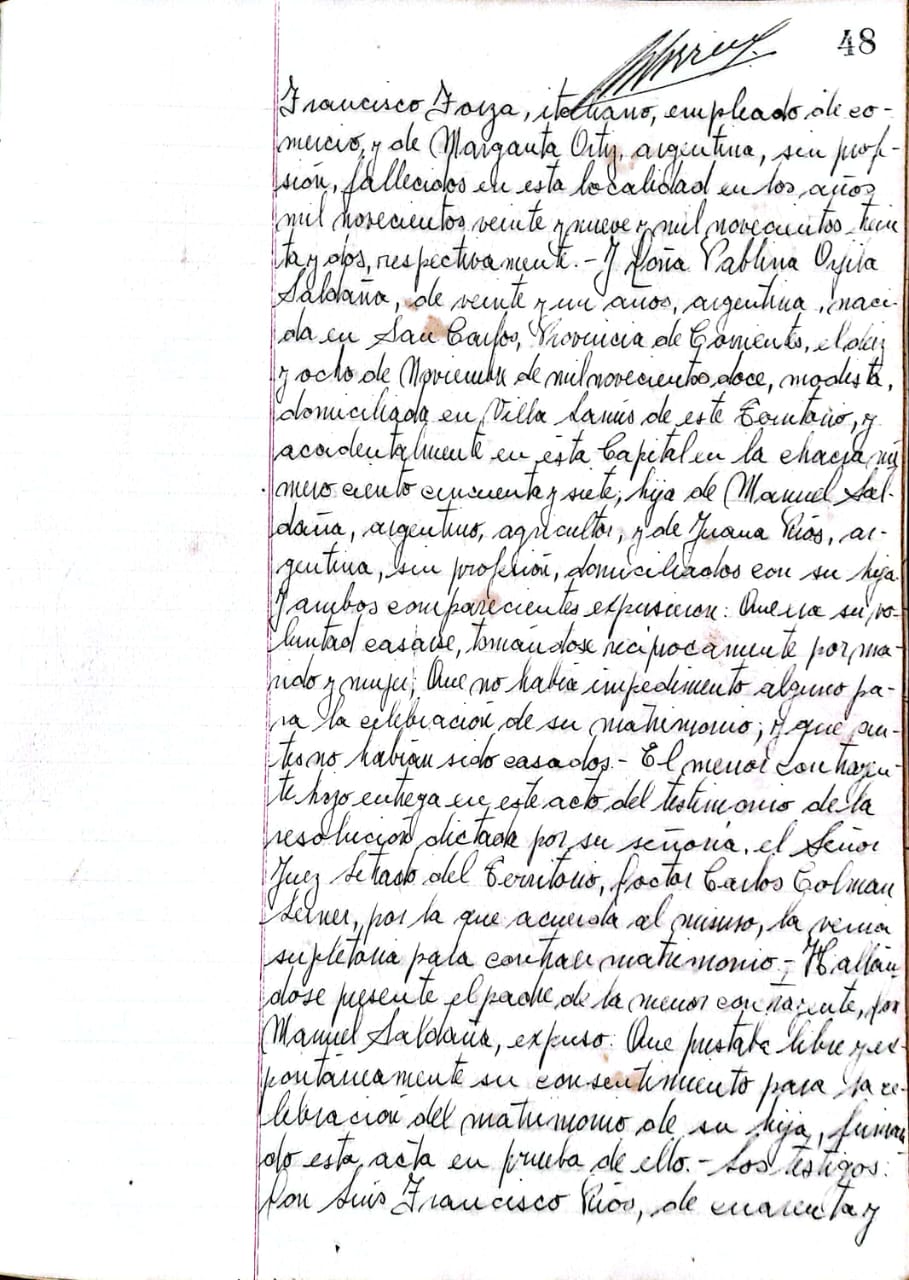 48
Francisco Forza, italiano, empleado de co-
mercio, y de Margarita Ortiz, argentina, sin profe-
sión, fallecidos en esta localidad en los años
mil novecientos veinte y nueve y mil novecientos trein
ta y dos, respectivamente.- Y Doña Pablina
Saldaña, de veinte y un años, argentina, naci-
da en San Carlos, Provincia de Corrientes, el diez
y ocho de Noviembre de mil novecientos doce, modista,
domiciliada en Villa Lanús de este Territorio, y
accidentalmente en esta Capital en la chacra nú
mero ciento cincuenta y siete, hija de Manuel Sal-
daña, argentino, agricultor, y de Juana Ríos, ar-
gentina, sin profesión, domiciliados con su hija
Y ambos comparecientes expusieron: Que era su vo-
luntad casarse, tomándose recíprocamente por ma-
rido y mujer; Que no había impedimento alguno pa-
ra la celebración de su matrimonio; y que an-
tes no habían sido casados.- El menor contrayen-
te hizo entrega en este acto del testimonio de la
resolución dictada por su señoría, el Señor
Juez Letrado del Territorio, Doctor Carlos Colman
Lerner, por la que acuerda al mismo, la venia
supletoria para contraer matrimonio.- Hallán
dose presente el padre de la menor contrayente, Don
Manuel Saldaña, expuso: Que prestaba libre y es-
pontáneamente su consentimiento para la ce-
lebración del matrimonio de su hija, firman
do esta acta en prueba de ello.- Los testigos:
Don Luis Francisco Ríos, de cuarenta y